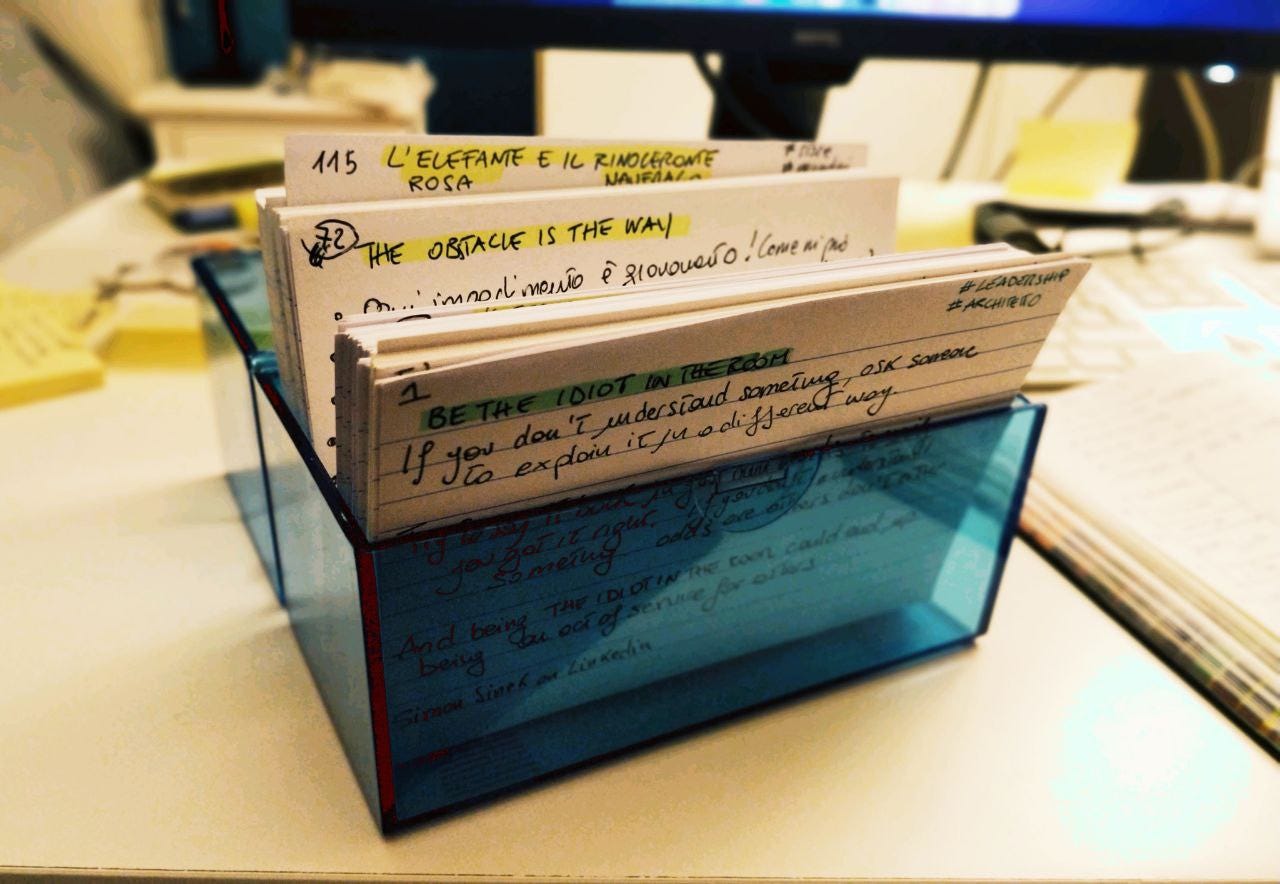 115 L'ELEFANTE E IL RINOCERONTE
ROSA NAUFRAGO
72 THE OBSTACLE IS THE WAY
impedimento è giovamento! Come mi può
#LEADERSHIP
#ARCHITETTO
1
BE THE IDIOT IN THE ROOM
If you don't understand something, ask someone
to explain it in a different way.
Try to say it back in your own words to
you got it right. If you don't understand
something odds are others don't either
And being THE IDIOT IN THE ROOM could end up
being an act of service for others
Simon Sinek on Linkedin